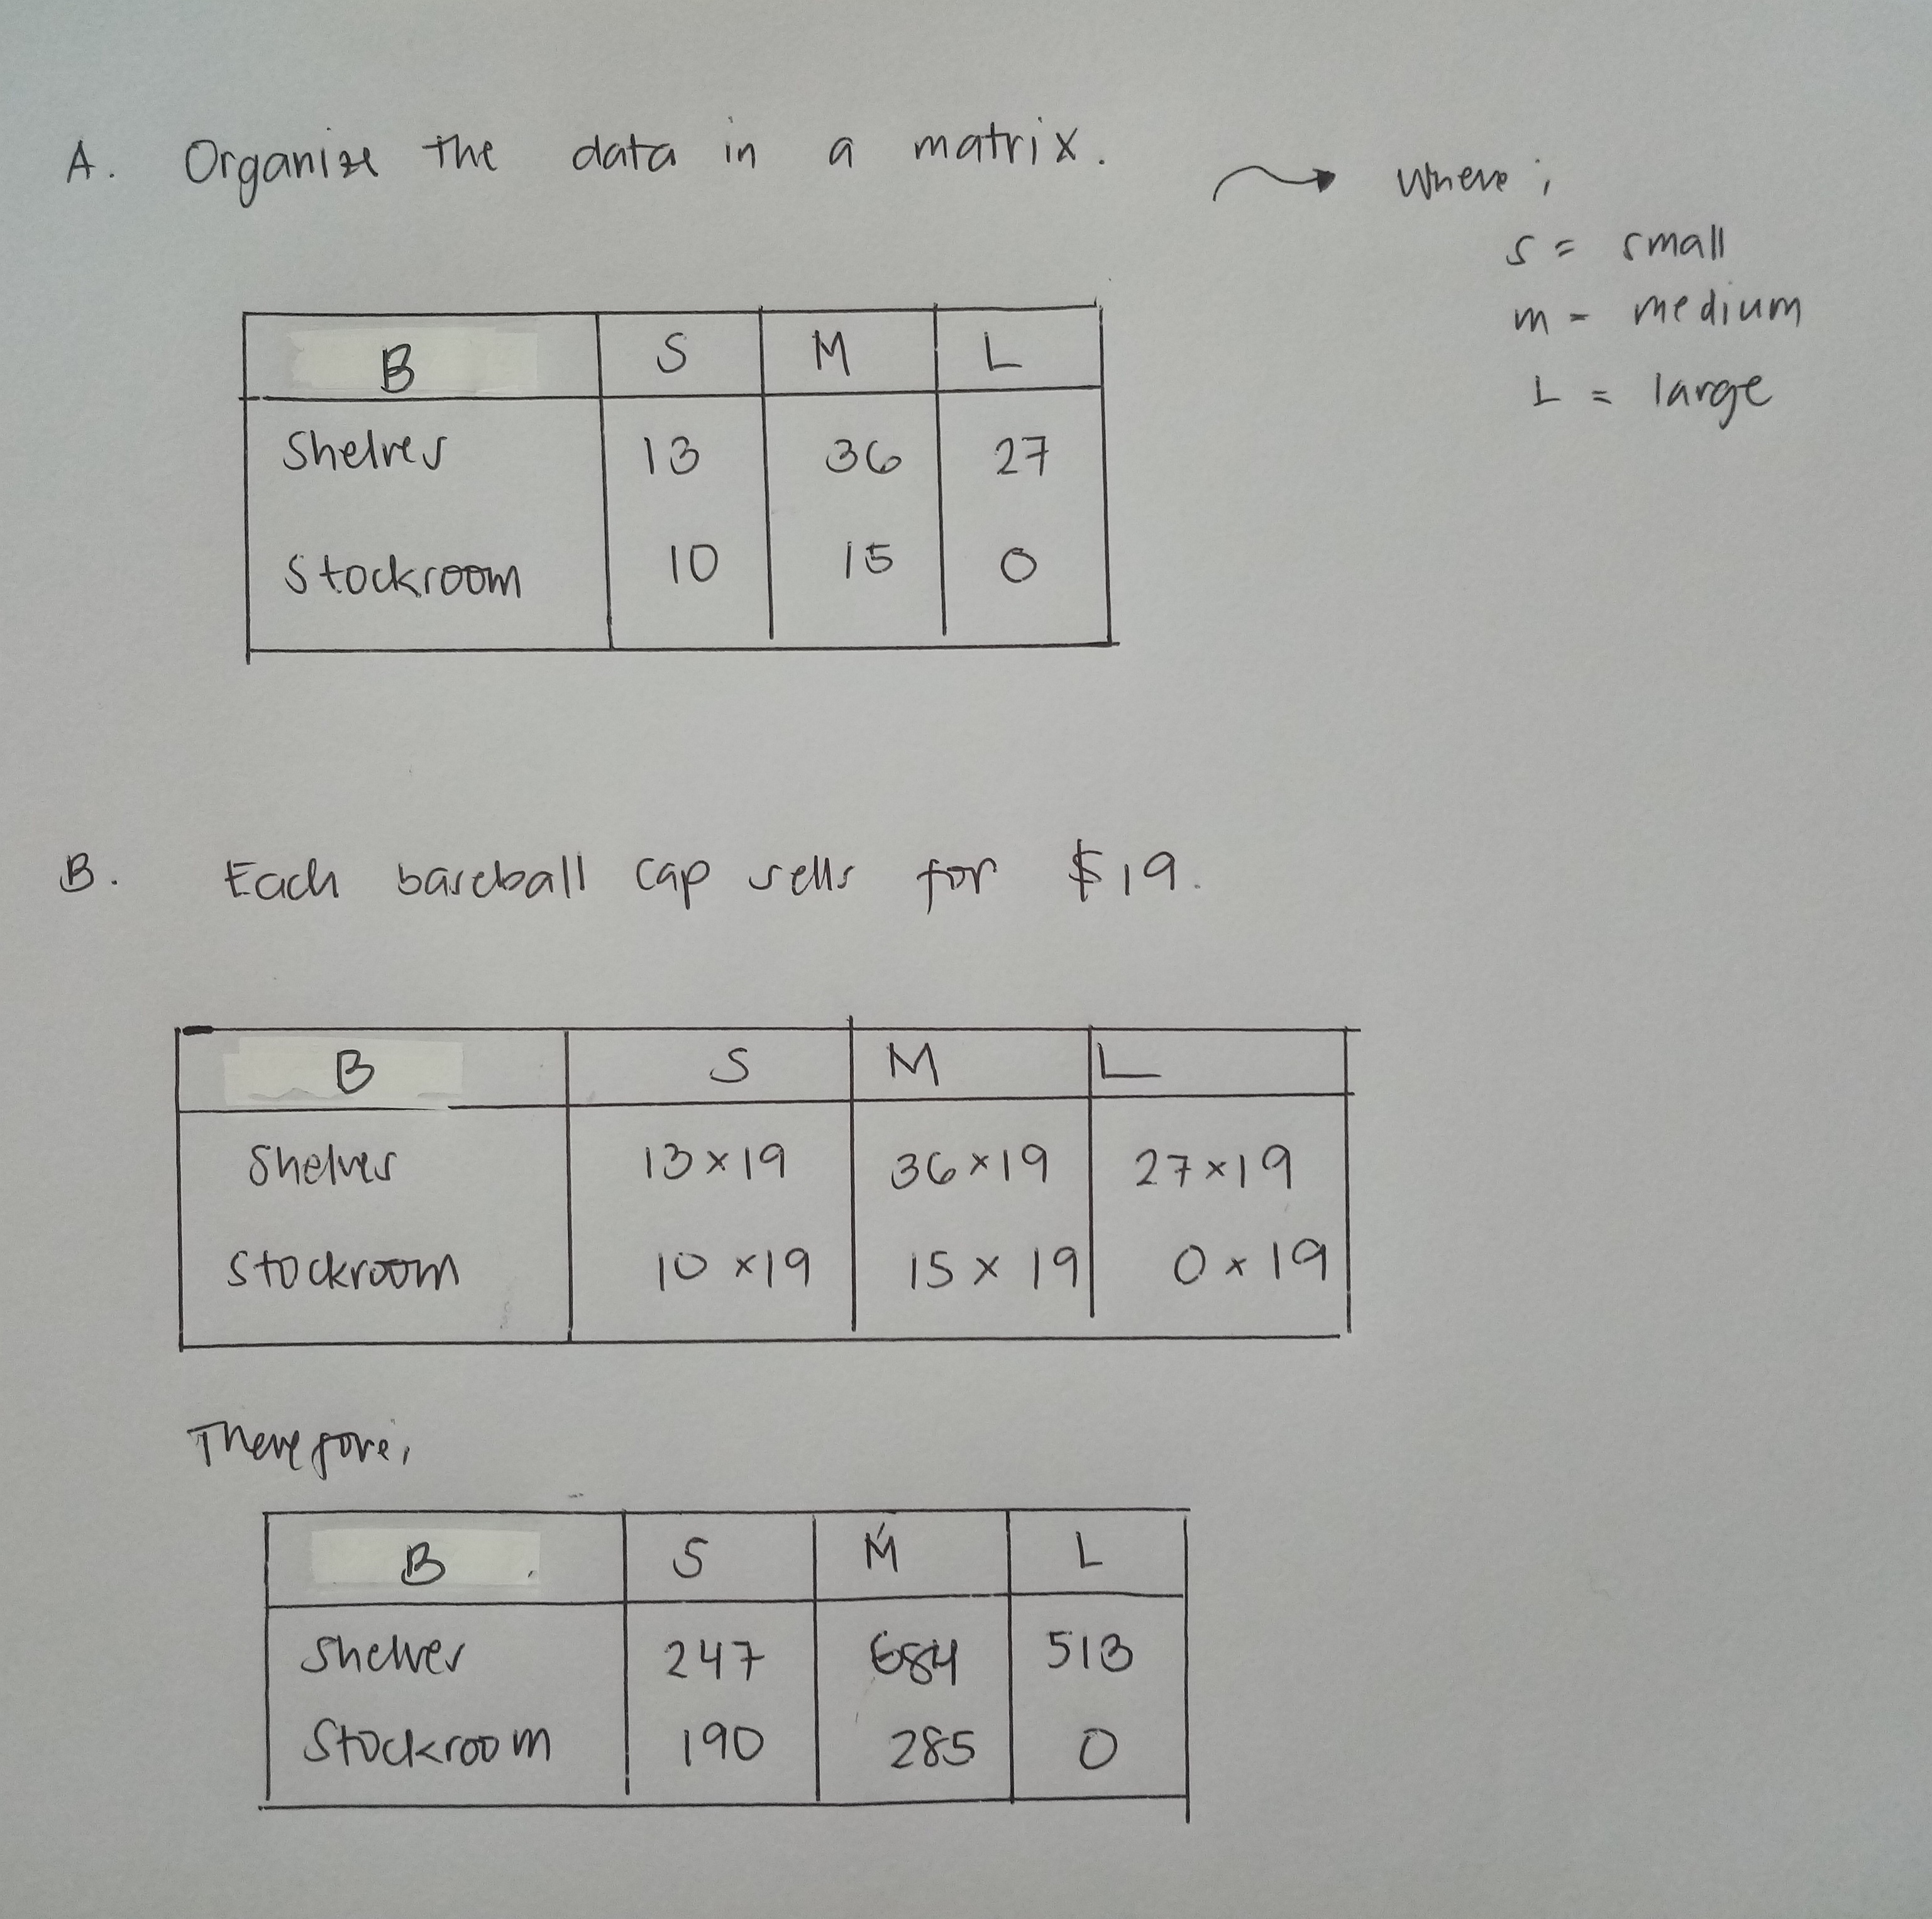 A. Organize the data in a matrix.
Where;
S = small
m = medium
L = large
B S M L
Shelves 13 36 27
Stockroom 10 15 0
B. Each baseball cap sells for $19.
B S M L
Shelves 13×19 36×19 27×19
Stockroom 10×19 15×19 0×19
Therefore,
B S M L
Shelves 247 684 513
Stockroom 190 285 0